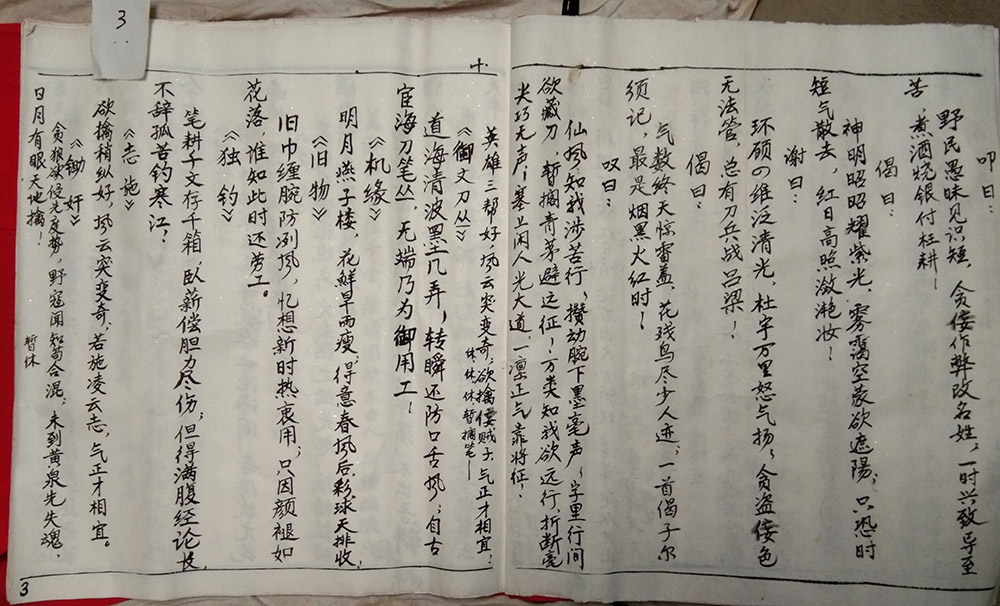 叩曰：
野民愚昧见识短，贪倿作弊改名姓，一时兴致导至
苦，煮酒烧银付枉耕！
偈曰：
神明昭昭耀紫光，雾霭空蒙欲遮陽；只恐时
短气散去，红日高照潋滟妆！
谢曰：
环顾四维泛清光，杜宇万里怒气扬；贪盗倿色
无法管，总有刀兵战吕梁！
偈曰：
气数终天惊雷盖，花残鸟尽少人迹，一首偈子尔
须记，最是烟黑火红时！
叹曰：
仙风知我涉苦行；攒动腕下墨毫声；字里行间
欲藏刀，暂搁青茅避远征！万类知我欲远行，折断毫
尖巧无声；塞上闲人光大道，一凛正气靠将征！
十
英雄三帮好，风云突变奇，欲擒倿贼子，气正才相宜！
休休休暂搁笔！
《御文刀丛》
道海清波墨几弄，转瞬还防口舌风；自古
宦海刀笔丛，无端乃为御用工！
《机缘》
明月燕子楼，花鲜旱雨瘦；得意春风后，彩球天排收；
《旧物》
旧巾缠腕防冽风，忆想新时热衷用，只因颜褪如
花落，谁知此时还劳工。
《独钓》
笔耕千文存千箱，卧薪偿胆力尽伤；但得满腹经论长，
不辞孤苦钓寒江；
《志施》
欲擒稍纵好，风云突变奇，若施凌云志，气正才相宜。
《锄奸》
贪狼欲侵先度势，野寇闻知苟合混，未到黄泉先失魂，
日月有眼天地擒！
暂休
3
3